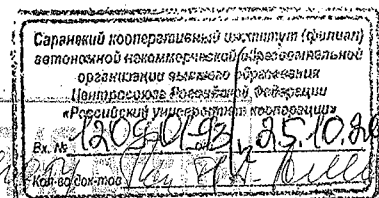 Саранский кооперативный институт (филиал)
автономной некоммерческой образовательной
организации высшего образования
Центросоюза Российской Федерации
«Российский университет кооперации»
Вх. № 1209-01-93 25.10.20
Кол-во док-тов